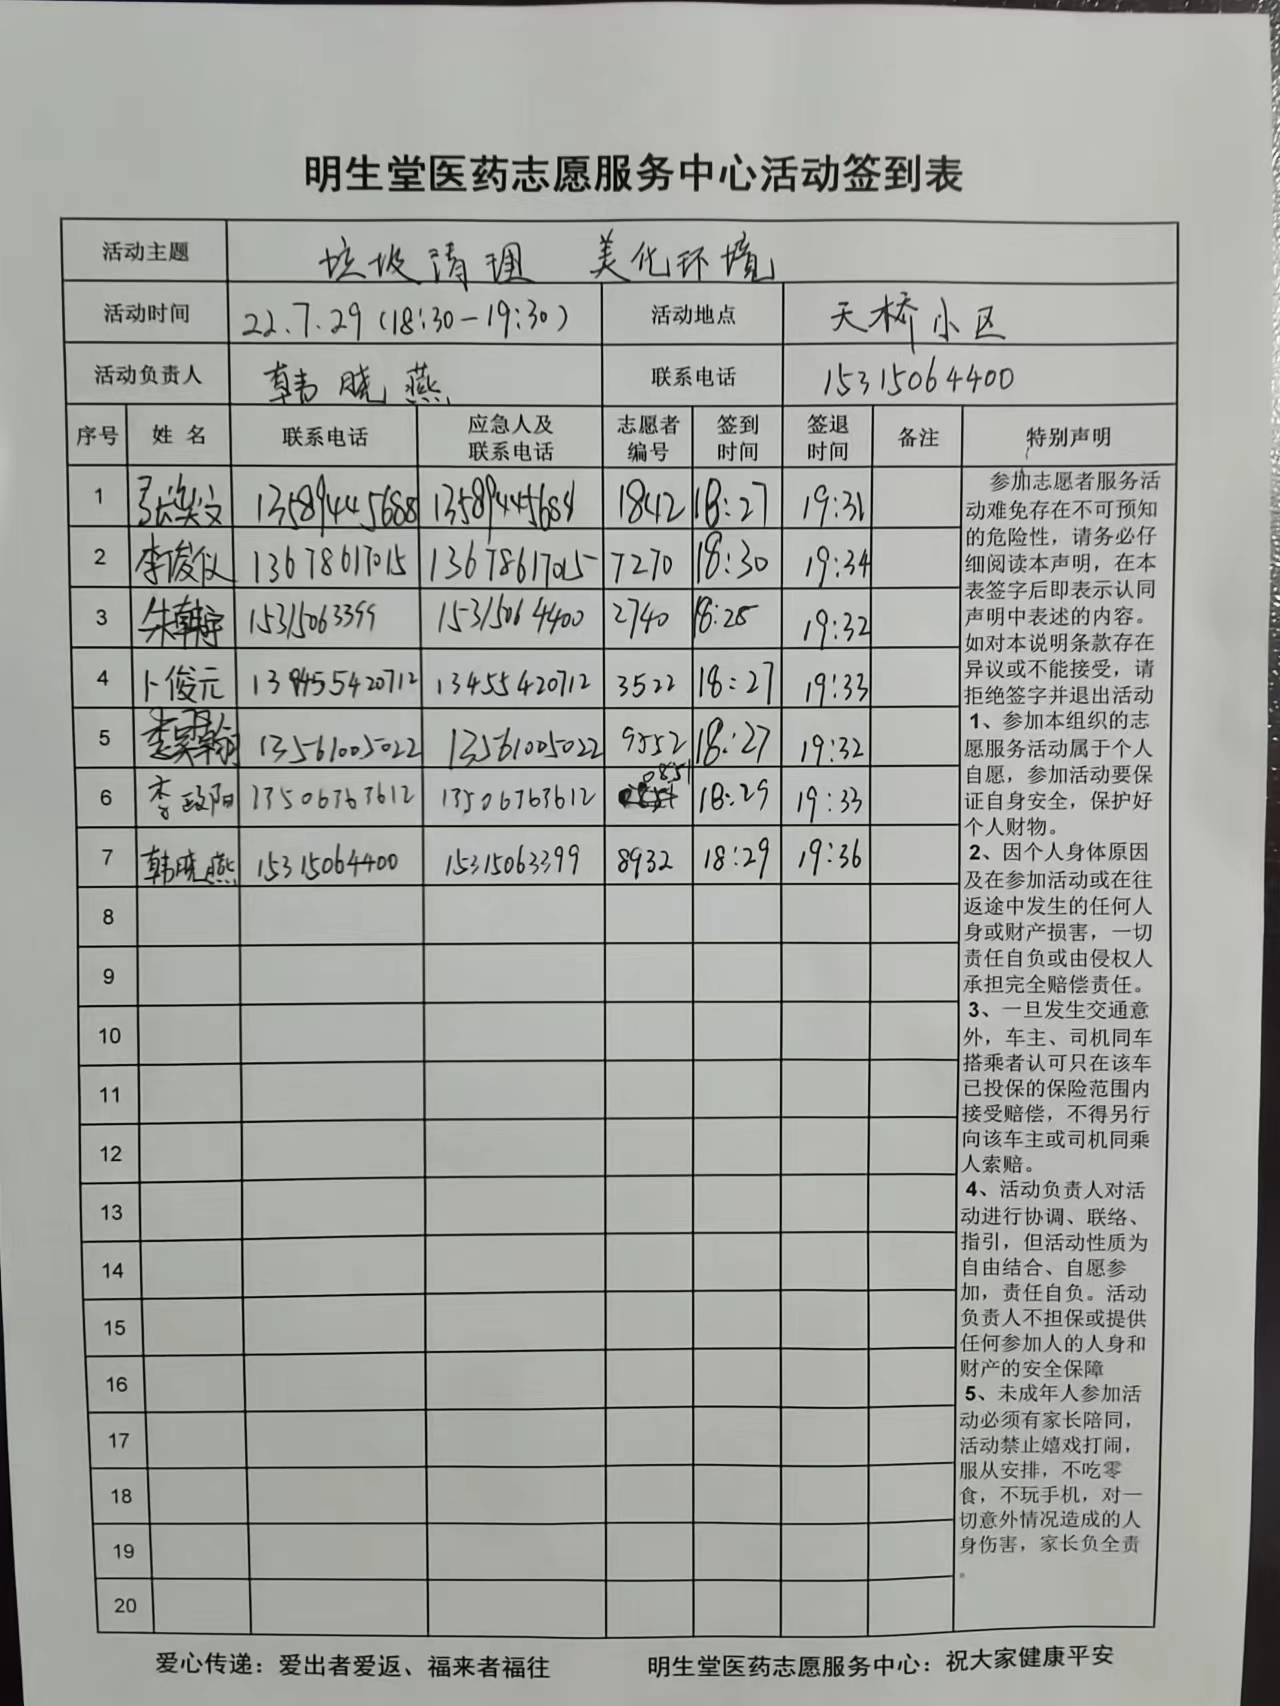 明生堂医药志愿服务中心活动签到表
活动主题 垃圾清理 美化环境
活动时间 22.7.29(18:30-19:30) 活动地点 天桥小区
活动负责人 韩晓燕 联系电话 15315064400
序号 姓名 联系电话 应急人及联系电话 志愿者编号 签到时间 签退时间 备注 特别声明
1 13589445688 1842 18:27 19:31
2 李俊仪 13678617015 13678617015 7270 18:30 19:34
3 15315063399 15315064400 2740 18:28 19:32
4 卜俊元 13455420712 3522 18:27 19:33
5 13561005022 13561005022 9552 18:27 19:32
6 李政阳 13506763612 13506763612 0851 18:29 19:33
7 韩晓燕 15315064400 15315063399 8932 18:29 19:36
8
9
10
11
12
13
14
15
16
17
18
19
20
参加志愿者服务活
动难免存在不可预知
的危险性，请务必仔
细阅读本声明，在本
表签字后即表示认同
声明中表述的内容。
如对本说明条款存在
异议或不能接受，请
拒绝签字并退出活动
1、参加本组织的志
愿服务活动属于个人
自愿，参加活动要保
证自身安全，保护好
个人财物。
2、因个人身体原因
及在参加活动或在往
返途中发生的任何人
身或财产损害，一切
责任自负或由侵权人
承担完全赔偿责任。
3、一旦发生交通意
外，车主、司机同车
搭乘者认可只在该车
已投保的保险范围内
接受赔偿，不得另行
向该车主或司机同乘
人索赔。
4、活动负责人对活
动进行协调、联络、
指引，但活动性质为
自由结合、自愿参
加，责任自负。活动
负责人不担保或提供
任何参加人的人身和
财产的安全保障
5、未成年人参加活
动必须有家长陪同，
活动禁止嬉戏打闹，
服从安排，不吃零
食，不玩手机，对一
切意外情况造成的人
身伤害，家长负全责
。
爱心传递：爱出者爱返、福来者福往 明生堂医药志愿服务中心：祝大家健康平安